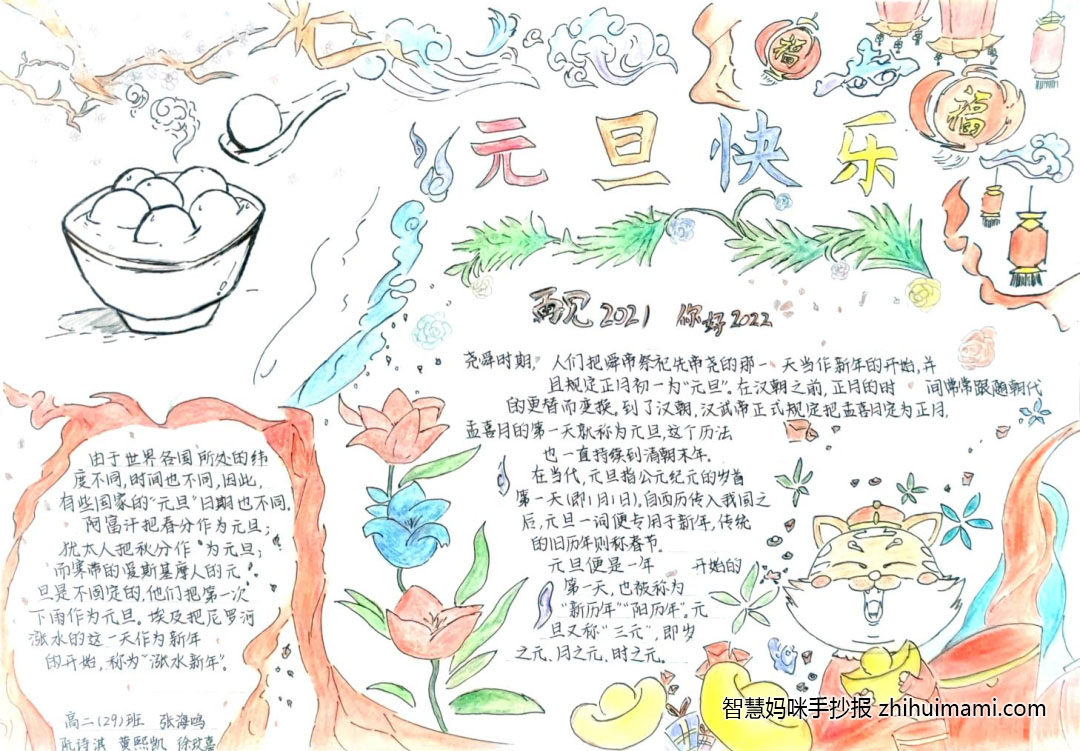 福
福
元旦快乐
再见2021 你好2022
尧舜时期，人们把舜帝祭祀先帝尧的那一 天当作新年的开始，并
且规定正月初一为“元旦”。在汉朝之前，正月的时 间常常跟随朝代
的更替而变换。到了汉朝，汉武帝正式规定把孟喜月定为正月，
孟喜月的第一天就称为元旦，这个历法
也一直持续到清朝末年。
在当代，元旦指公元纪元的岁首
第一天（即1月1日），自西历传入我国之
后，元旦一词便专用于新年，传统
的旧历年则称春节。
元旦便是一年 开始的
第一天，也被称为
“新历年”“阳历年”。元
旦又称“三元”，即岁
之元、月之元、时之元。
由于世界各国所处的纬
度不同，时间也不同，因此，
有些国家的“元旦”日期也不同。
阿富汗把春分作为元旦；
犹太人把秋分作 为元旦；
而寒带的爱斯基摩人的元
旦是不固定的，他们把第一次
下雨作为元旦。埃及把尼罗河
涨水的这一天作为新年
的开始，称为“涨水新年”。
高二（29）班 张海鸣
阮诗淇 黄熙凯 徐玟嘉
智慧妈咪手抄报 zhihuimami.com